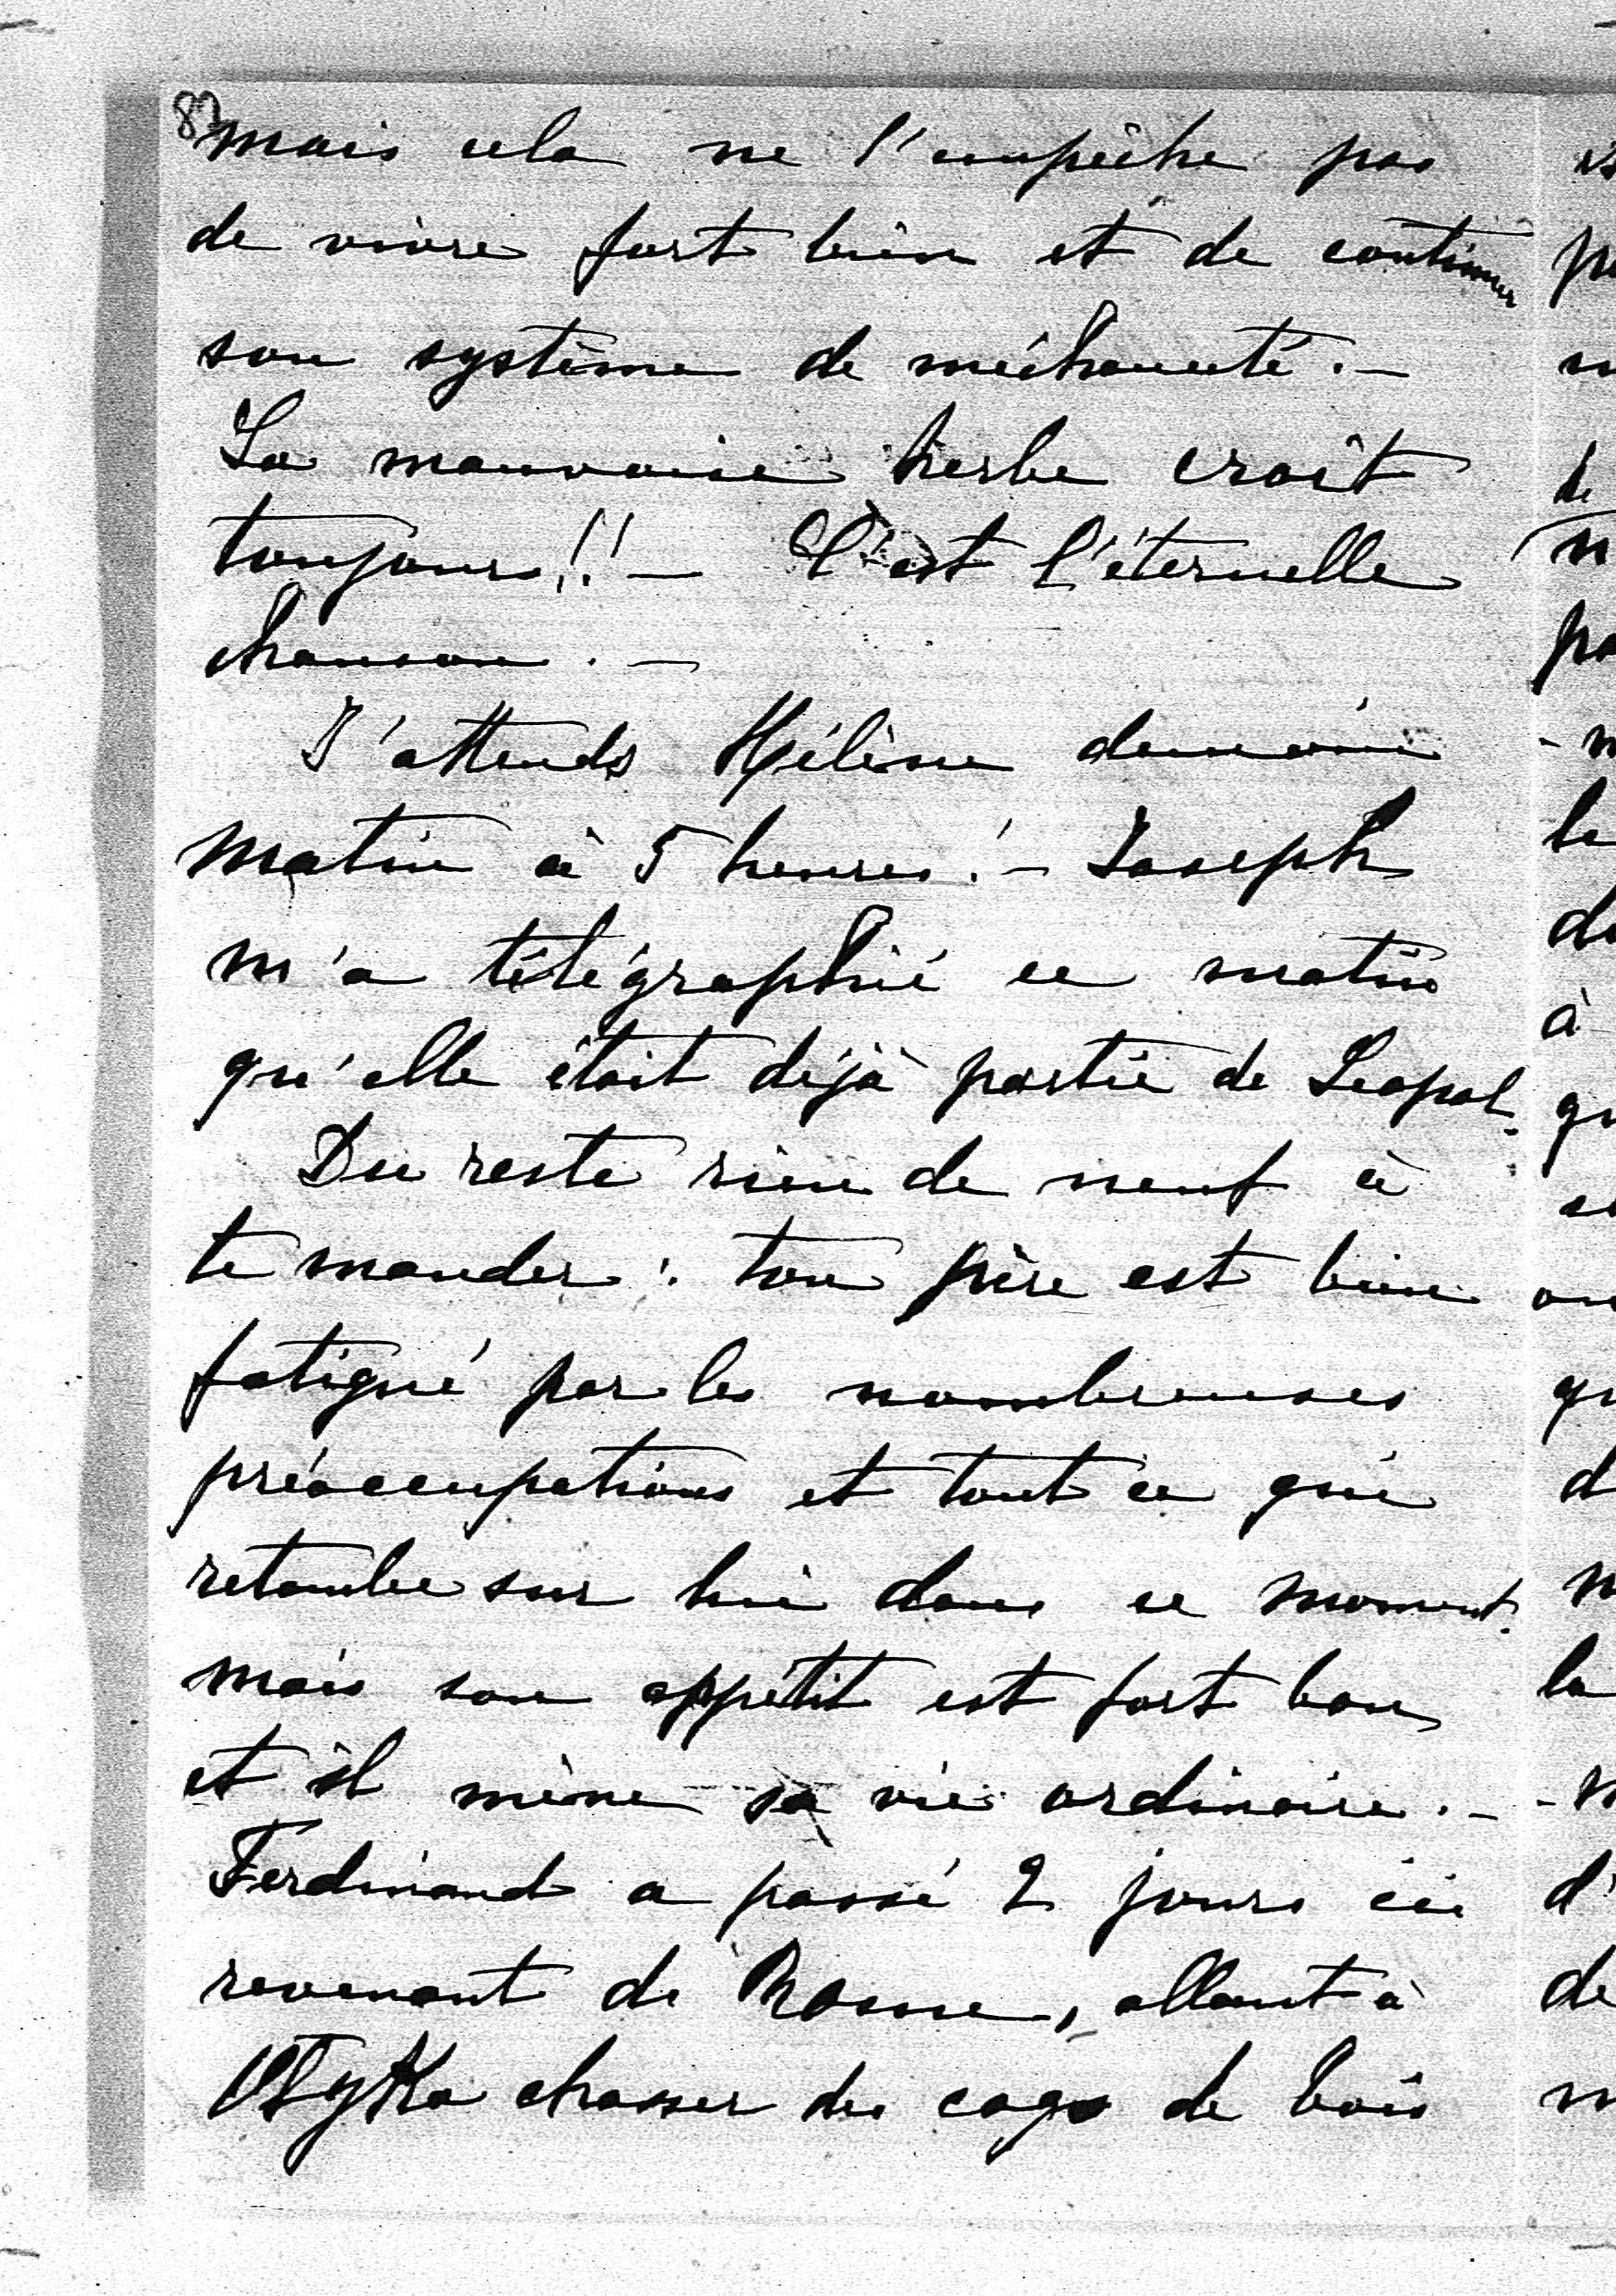 87
mais cela ne l'empêche pas
de vivre fort bien et de continuer
son système de méchanceté. —
La mauvaise herbe croît
toujours!! — C'est l'éternelle
chanson. —
J'attends Hélène demain
matin à 5 heures! — Joseph
m'a télégraphié ce matin
qu'elle était déjà partie de Léopol.
Du reste rien de neuf à
te mander: ton père est bien
fatigué par les nombreuses
préoccupations et tout ce qui
retombe sur lui dans ce moment.
mais son appétit est fort bon
et il mène sa vie ordinaire. —
Ferdinand a passé 2 jours ici
revenant de Rome, allant à
Ołyka chasser des coqs de bois